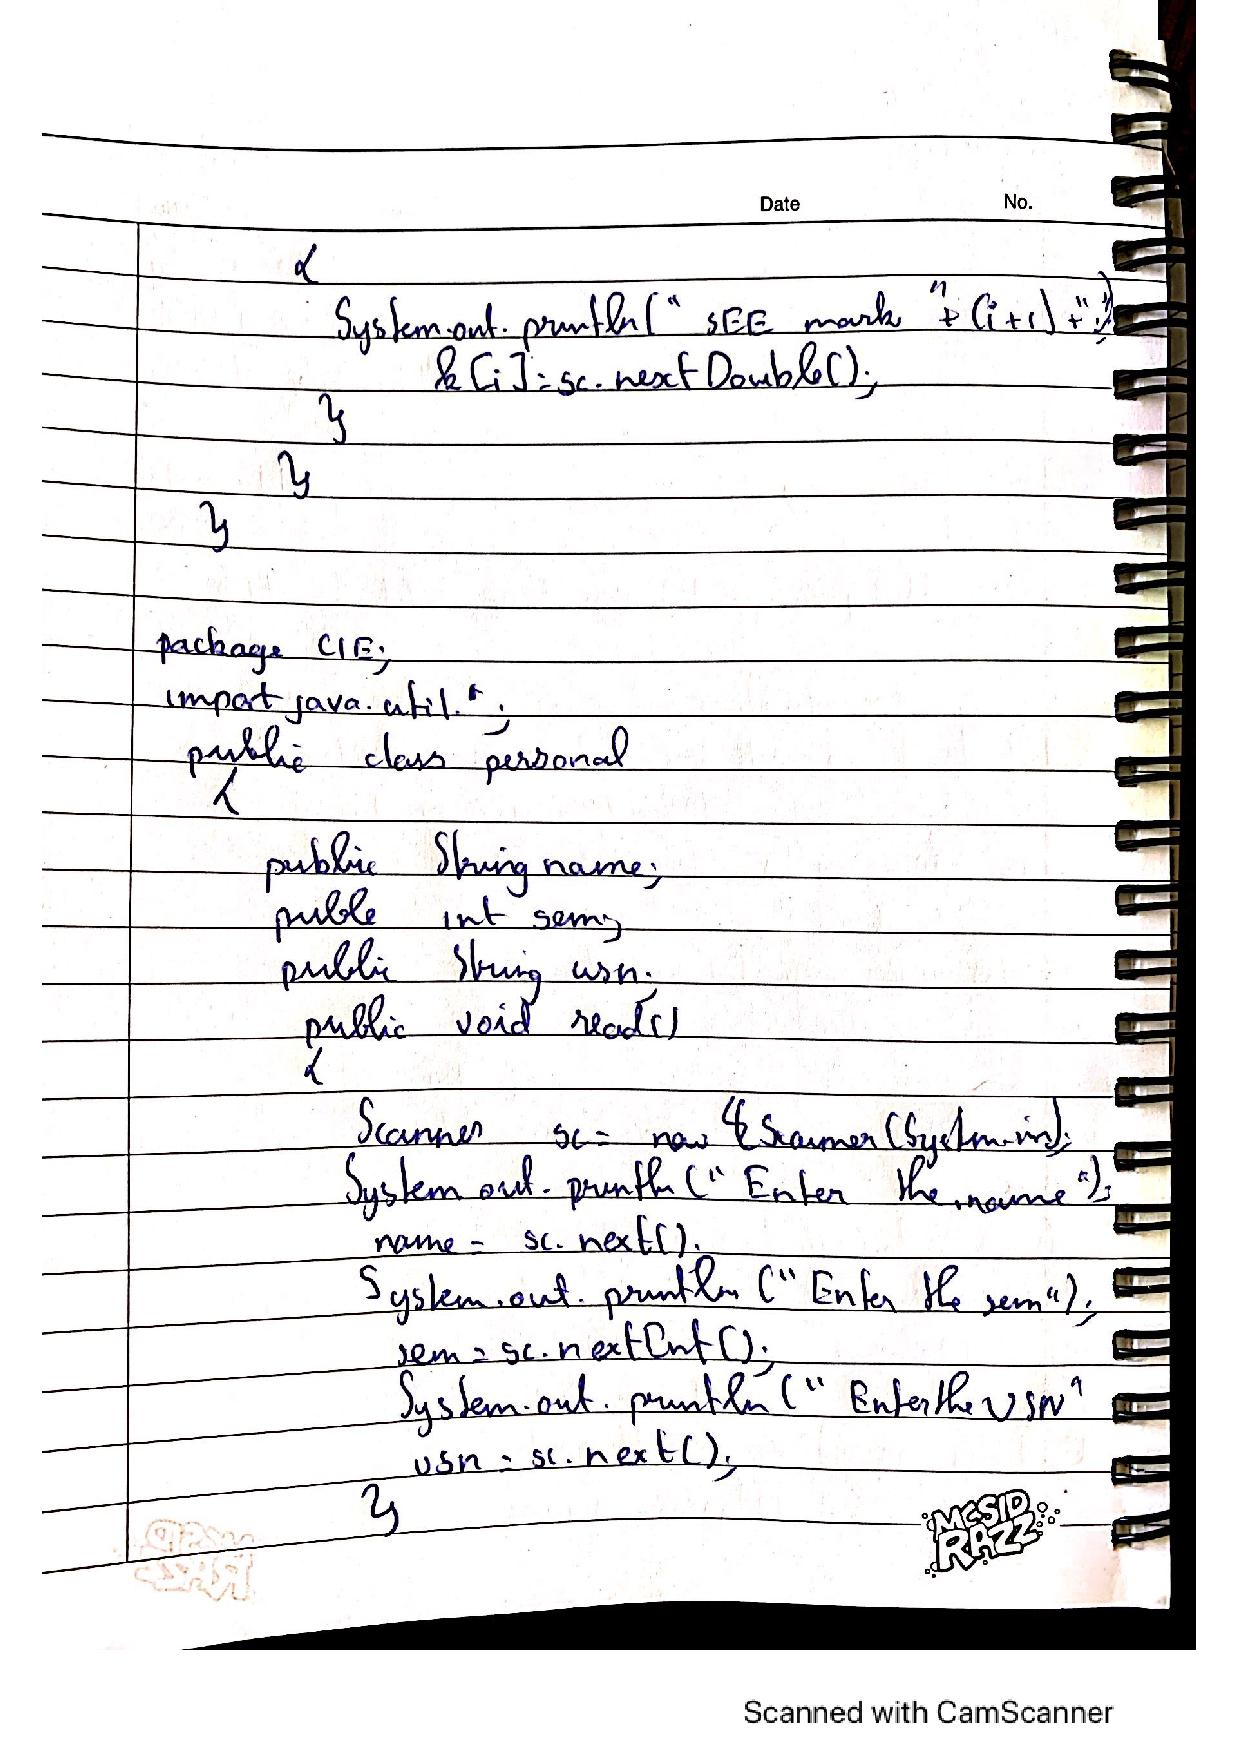 Date No.
{
System.out.println(" SEE mark "+(i+1)+":")
k[i]=sc.nextDouble();
}
}
}
package CIE;
import java.util.*;
public class personal
{
public String name;
puble int sem;
public String usn;
public void read()
{
Scanner sc= new Scanner(System.in);
System.out.println(" Enter the name");
name = sc.next();
System.out.println (" Enter the sem");
sem = sc.nextInt();
System.out.println (" Enter the USN"
usn = sc.next();
}
MCSID
RAZZ
Scanned with CamScanner